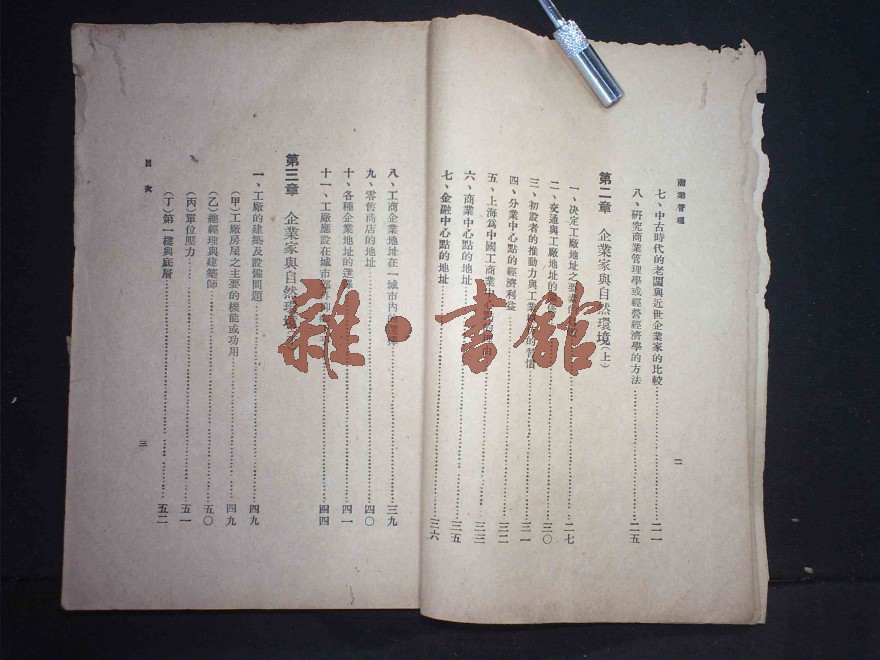 商業管理
七、中古時代的老闆與近世企業家的比較……二一
八、研究商業管理學或經營經濟學的方法……二五
第二章 企業家與自然環境(上)
一、決定工廠地址之要……二七
二、交通與工廠地址的……三〇
三、初設者的推動力與工業……的習慣……三一
四、分業中心點的經濟利益……三二
五、上海為中國工商業中心點……三三
六、商業中心點的地址……三五
七、金融中心點的地址……三六
二
八、工商企業地址在一城市內的選擇……三九
九、零售商店的地址……四〇
十、各種企業地址的選……四一
十一、工廠應設在城市……四四
第三章 企業家與自然環境
一、工廠的建築及設備問題……四九
(甲)工廠房屋之主要的機能或功用……四九
(乙)總經理與建築師……五〇
(丙)單位壓力……五一
(丁)第一樓與底層……五二
目次
三
雜·書館